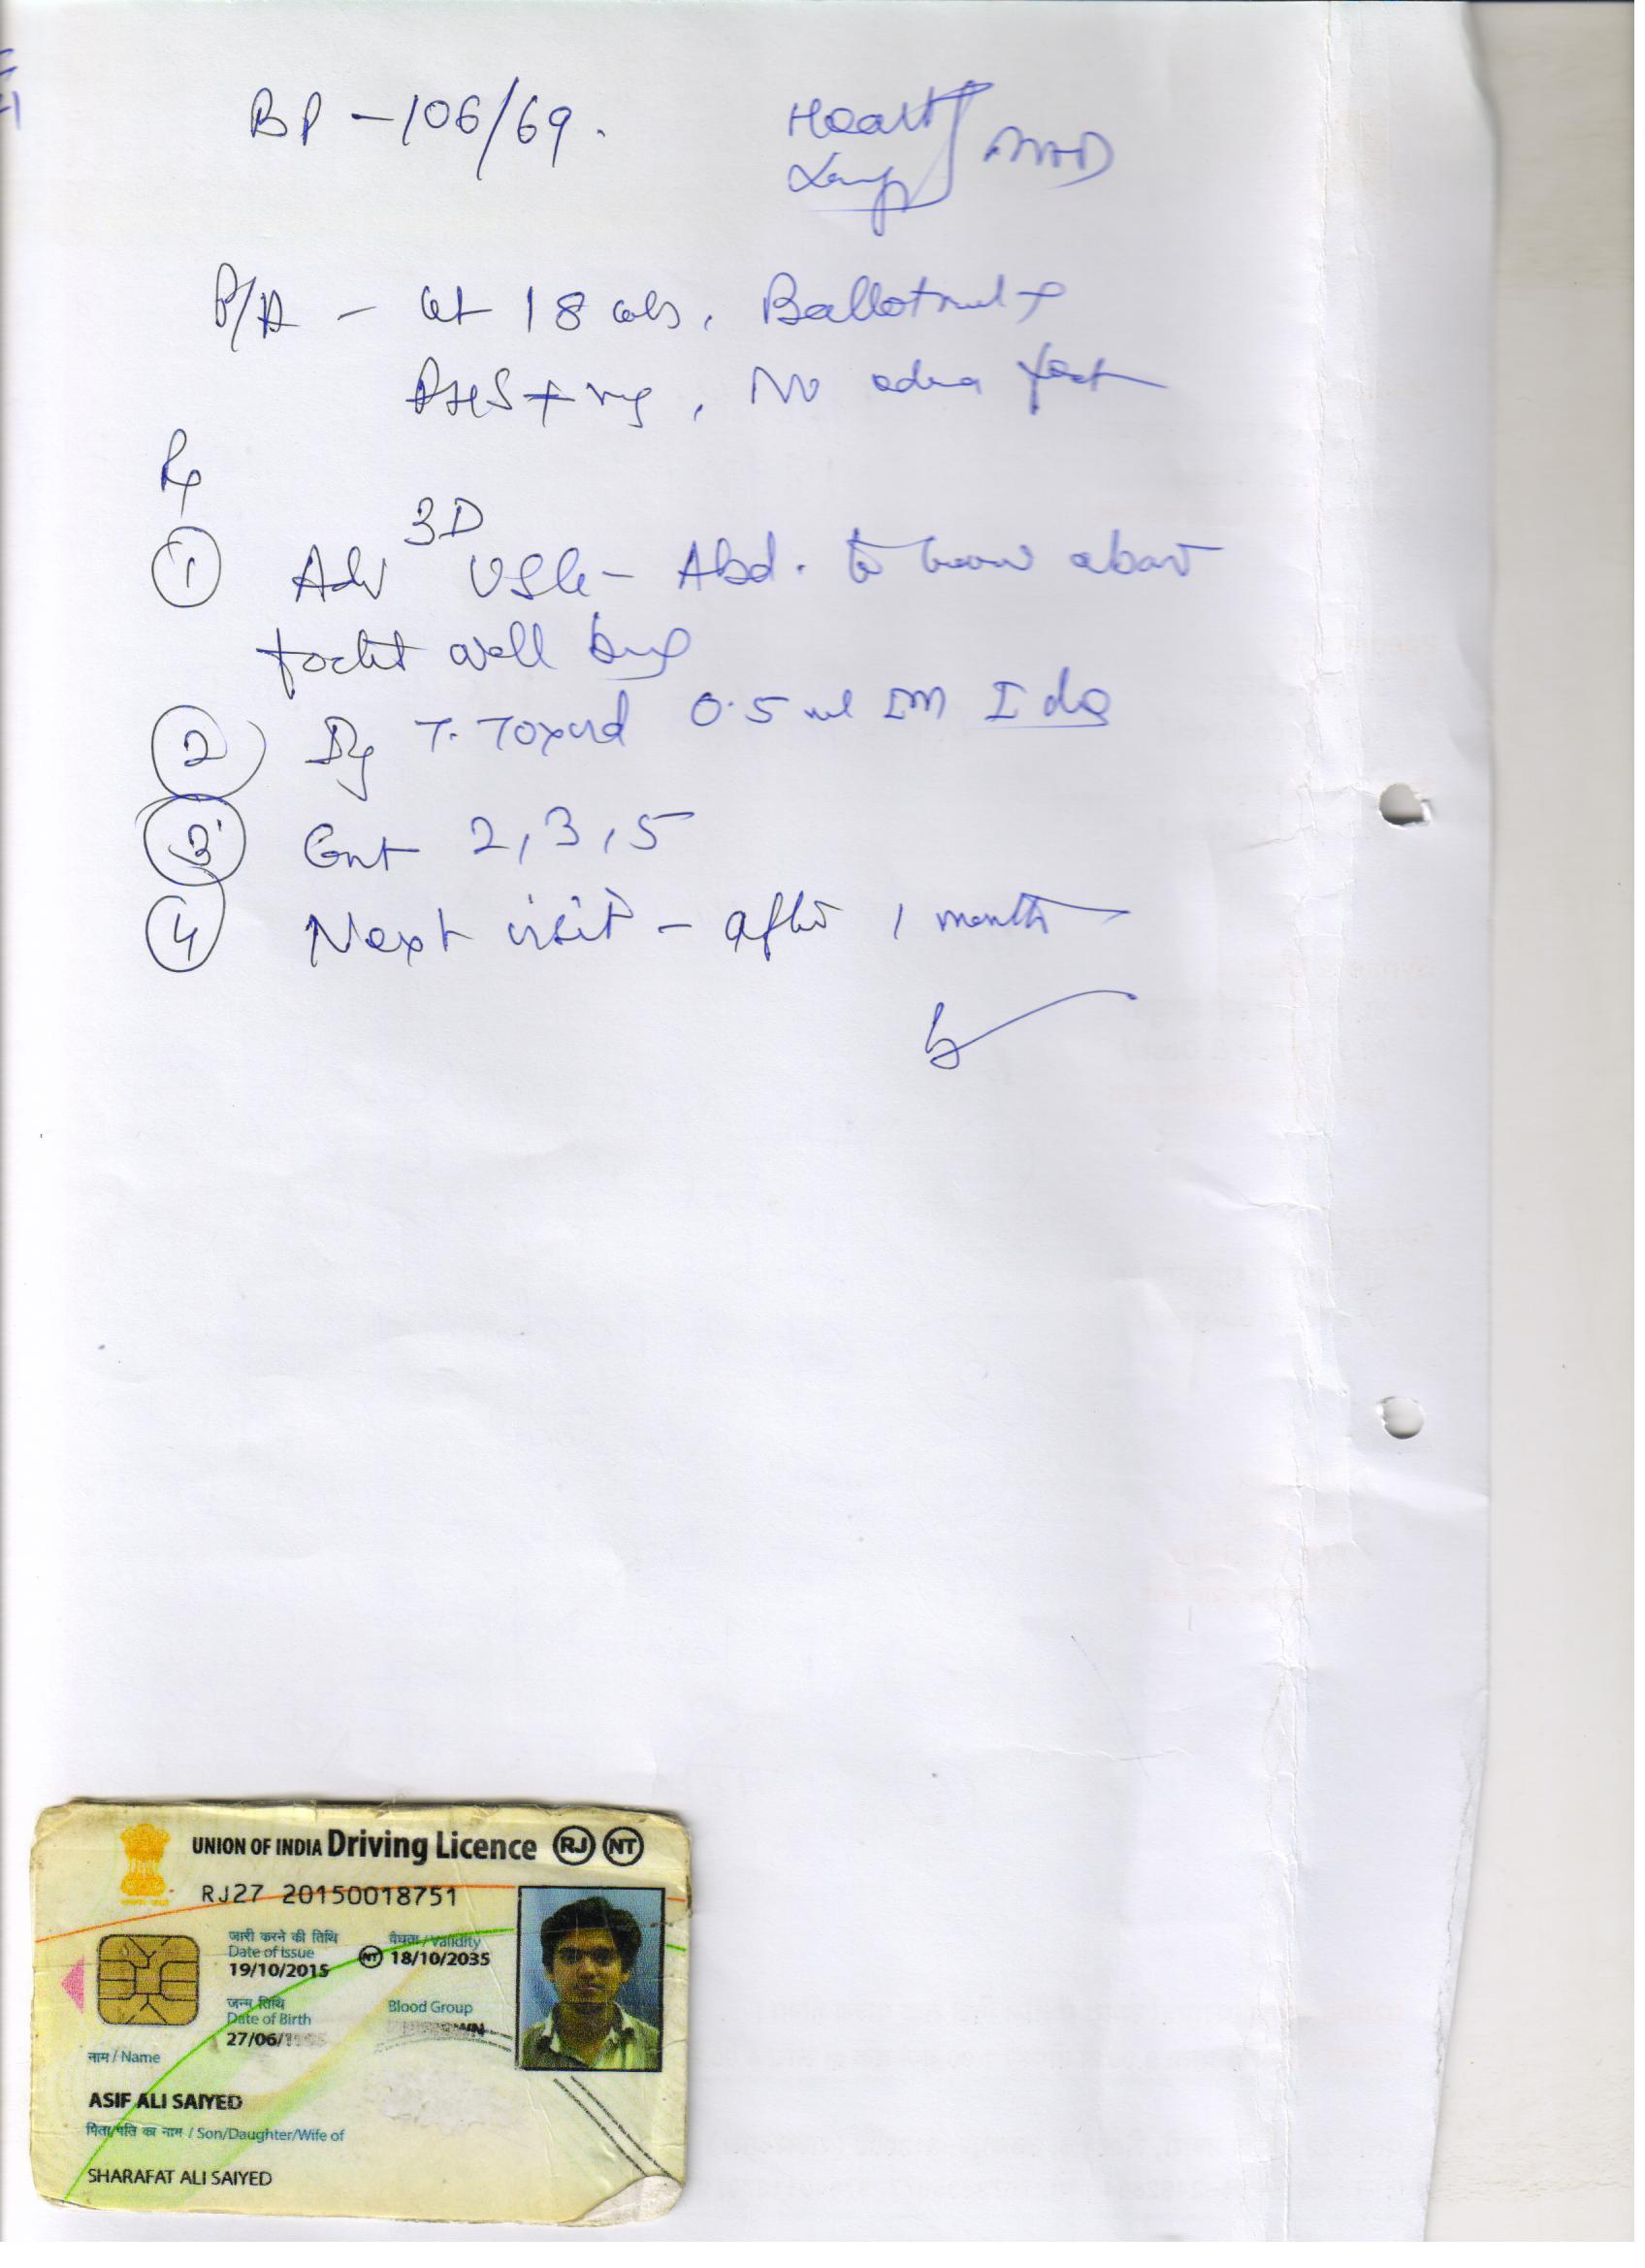 BP - 106/69.
Heart
Lungs
NAD
P/A - Ut 18 wks, Ballotment +
FHS + ve, No edema feet
Rx
1 Adv 3D USG - Abd. to know about
foetal well being
2 Inj T. Toxoid 0.5 ml IM I do
3 Cont 2, 3, 5
4 Next visit - after 1 month
UNION OF INDIA Driving Licence RJ NT
RJ27 20150018751
जारी करने की तिथि
Date of Issue
19/10/2015
वैधता / Validity
NT 18/10/2035
जन्म तिथि
Date of Birth
27/06/
Blood Group
नाम / Name
ASIF ALI SAIYED
पिता/पति का नाम / Son/Daughter/Wife of
SHARAFAT ALI SAIYED